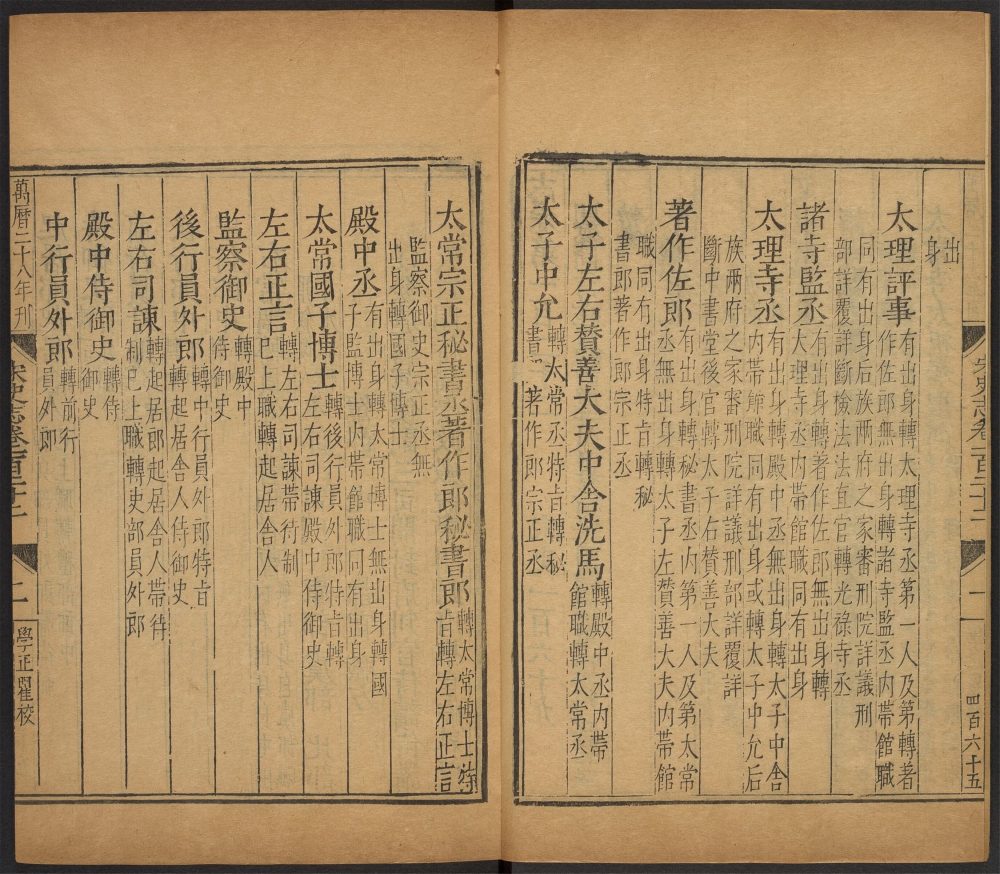 出
身
太理評事有出身轉太理寺丞第一人及第轉著
作佐郎無出身轉諸寺監丞内帶館職
同有出身后族兩府之家審刑院詳議刑
部詳覆詳斷檢法法直官轉光祿寺丞
諸寺監丞有出身轉著作佐郎無出身轉
大理寺丞内帶館職同有出身
太理寺丞有出身轉太子中舍
内帶館職同有出身或轉太子中允后
族兩府之家審刑院詳議刑部詳覆詳
斷中書堂後官轉太子右贊善大夫
著作佐郎有出身轉秘書丞内第一人及第太常
丞無出身轉太子左贊善大夫内帶館
職同有出身特旨轉秘
書郎著作郎宗正丞
太子左右贊善大夫中舍洗馬轉殿中丞内帶
館職轉太常丞
太子中允轉太常丞特旨轉秘
書 著作郎宗正丞
宋史志卷一百二十二
一
四百六十五
太常宗正秘書丞著作郎秘書郎轉太常博士特
旨轉左右正言
監察御史宗正丞無
出身轉國子博士
殿中丞有出身轉太常博士無出身轉國
子監博士内帶館職同有出身
太常國子博士轉後行員外郎特旨轉
左右司諫殿中侍御史
左右正言轉左右司諫帶待制
已上職轉起居舍人
監察御史轉殿中
侍御史
後行員外郎轉中行員外郎特旨
轉起居舍人侍御史
左右司諫轉起居郎起居舍人帶待
制已上職轉吏部員外郎
殿中侍御史轉侍
御史
中行員外郎轉前行
員外郎
萬曆二十八年刊
宋史志卷一百二十二
二
學正翟校